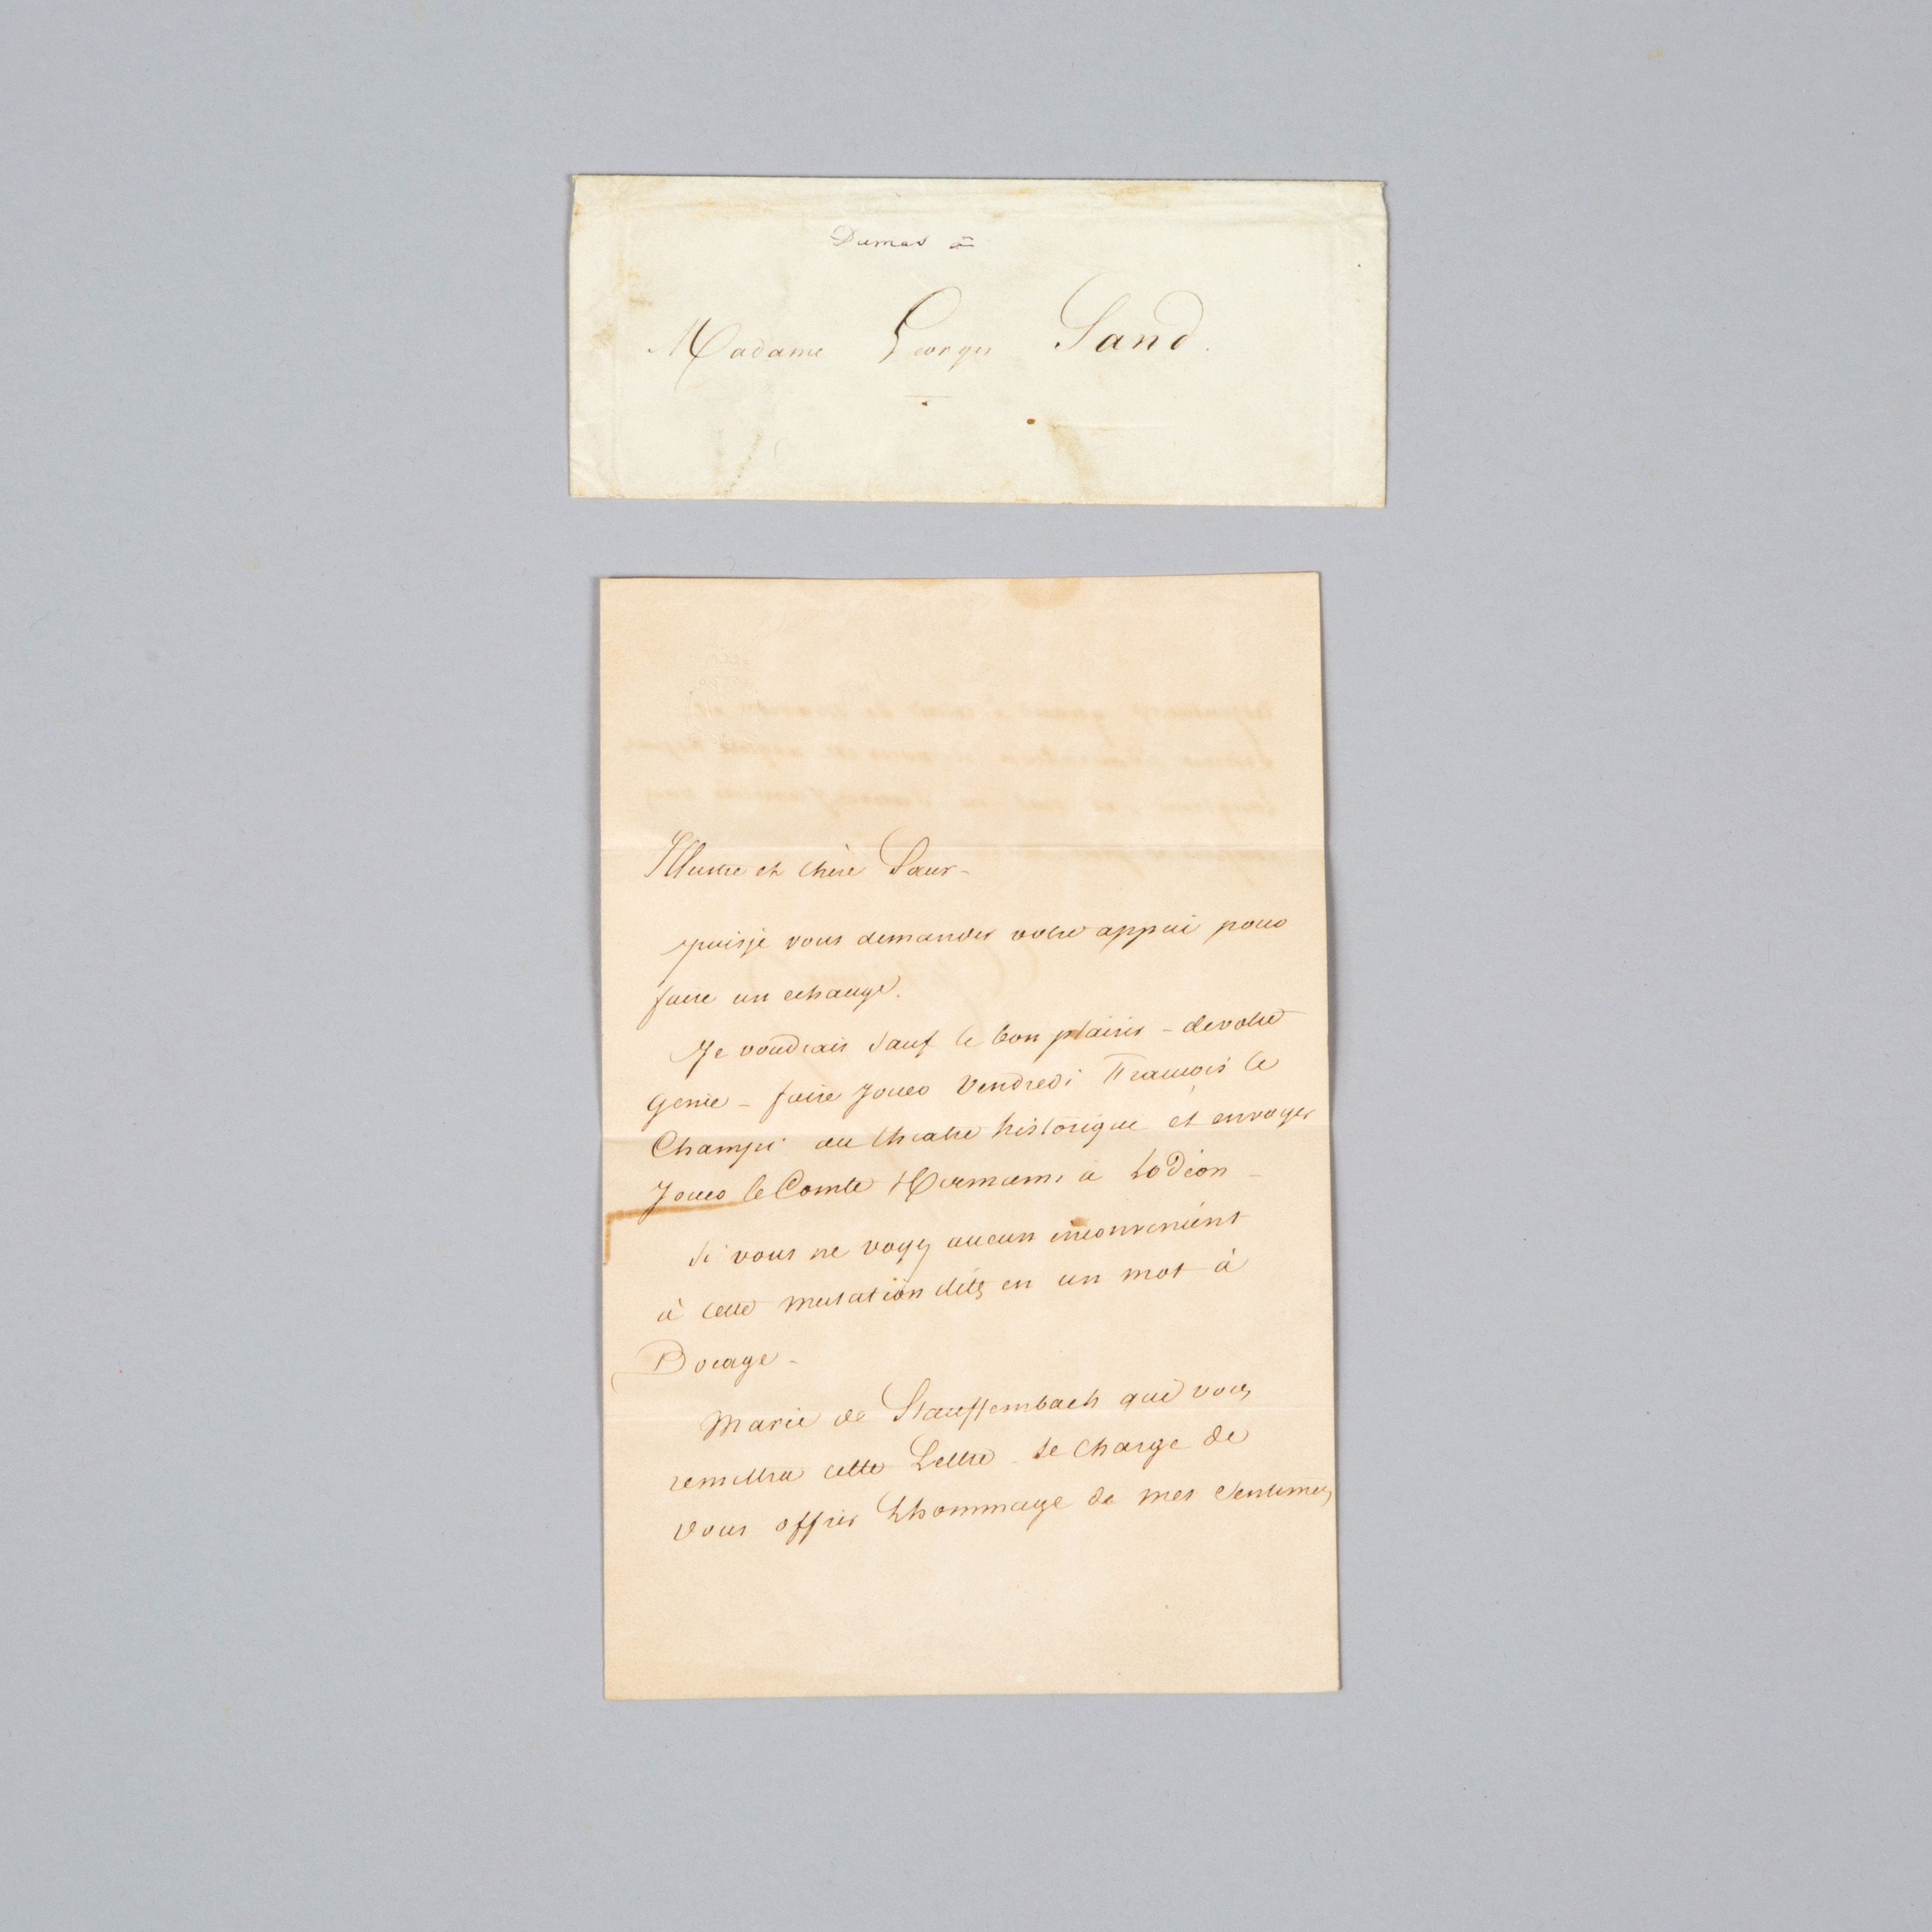 Dumas à
Madame Georges Sand.
Illustre et chère Sœur -
puisje vous demander votre appui pour
faire un echange.
Je voudrais sauf le bon plaisir - de votre
genie - faire jouer Vendredi François le
Champi au theatre historique et envoyer
jouer le Comte Hermann à Lodéon -
Si vous ne voyez aucun inconvenient
à cette mutation dites en un mot à
Bocage -
Marie de Stauffembach qui vous
remettra cette Lettre se charge de
vous offrir Lhommage de mes sentimens